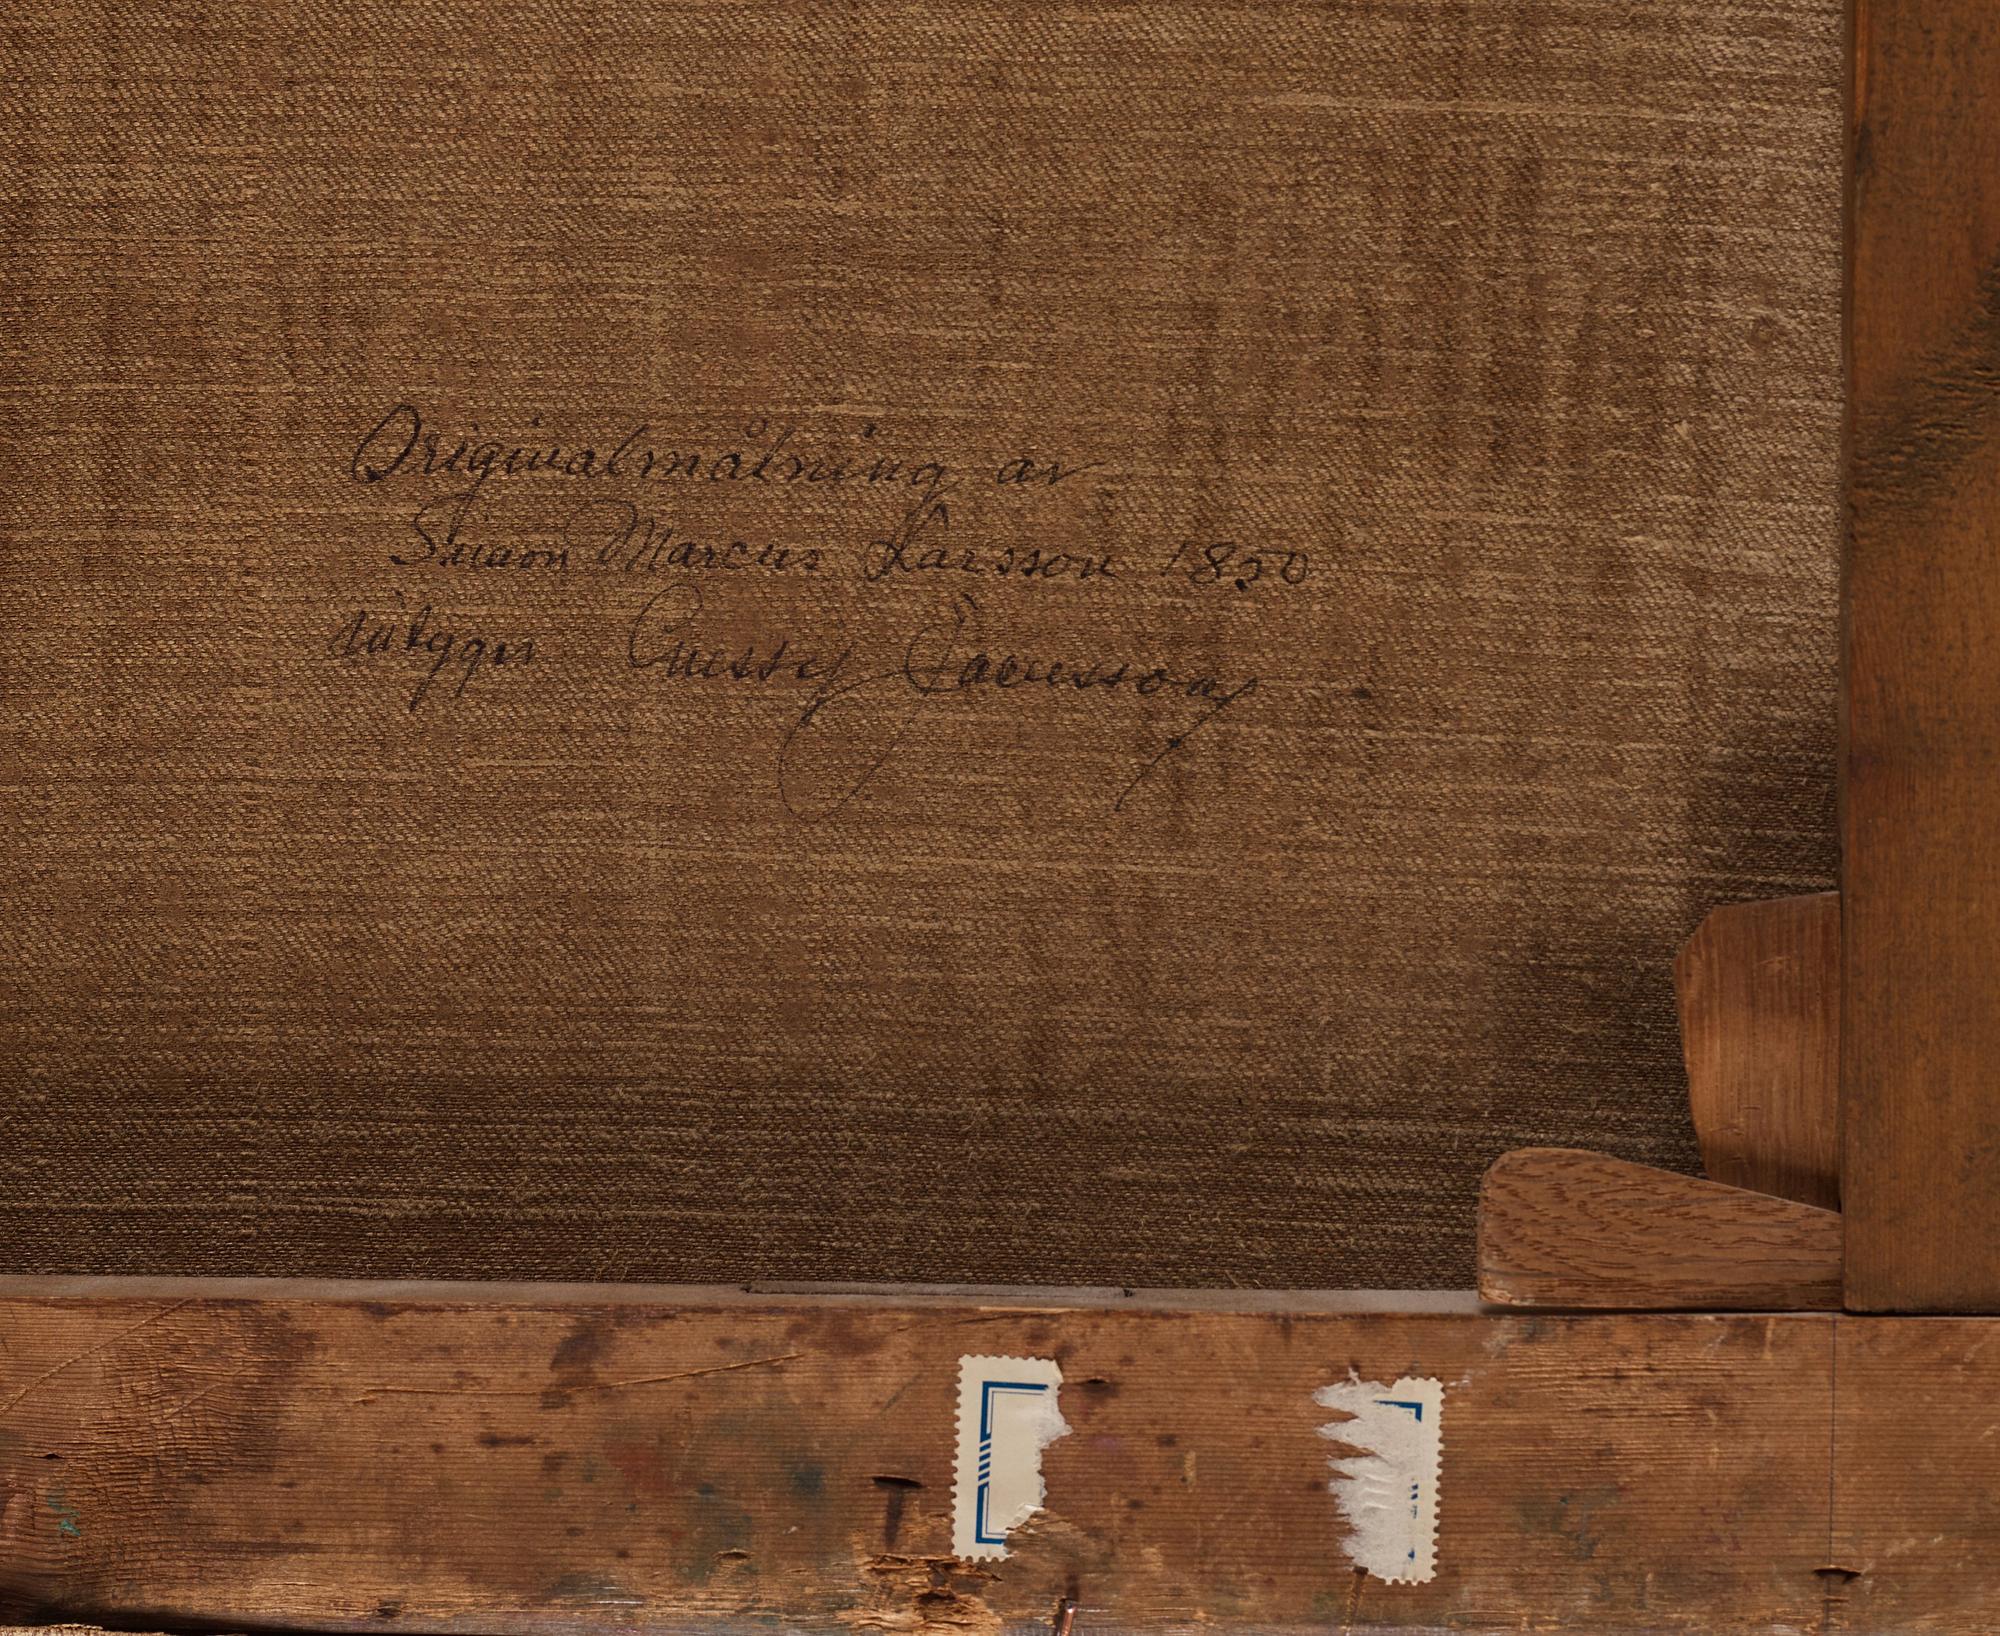 Originalmålning av
Simon Marcus Larsson 1850
intygar